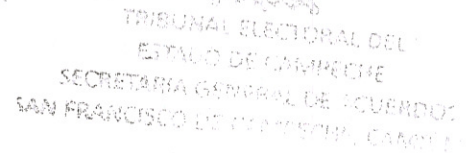 TRIBUNAL ELECTORAL DEL
ESTADO DE CAMPECHE
SECRETARIA GENERAL DE ACUERDOS
SAN FRANCISCO DE CAMPECHE,